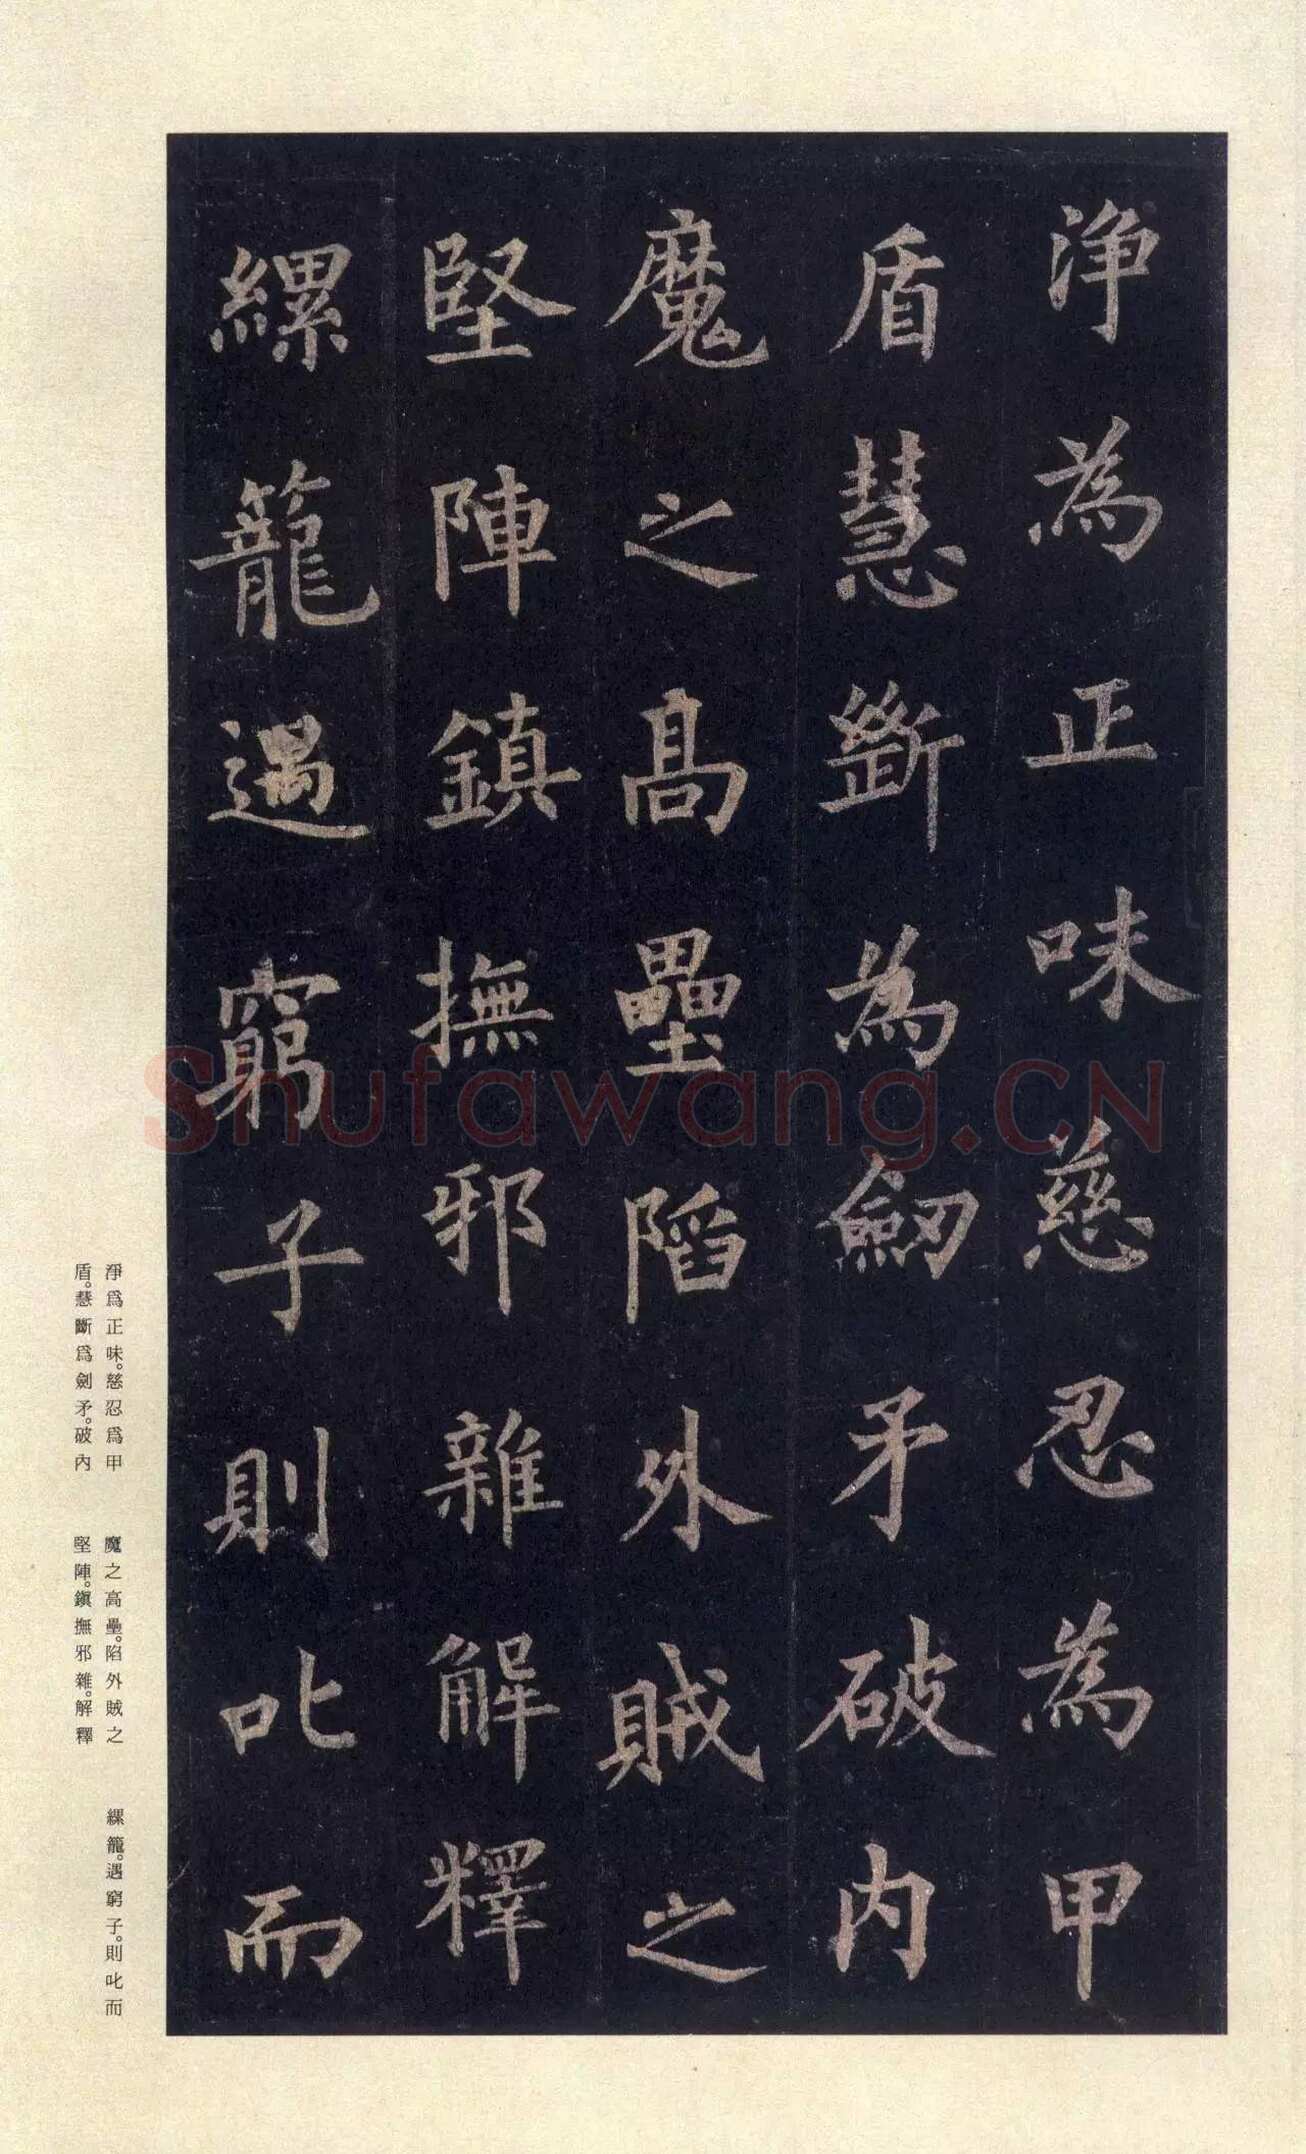 淨為正味慈忍為甲
盾慧斷為劒矛破内
魔之髙壘陷外賊之
堅陣鎮撫邪雜解釋
縲籠遇窮子則叱而
淨爲正味。慈忍爲甲
盾。慧斷爲劍矛。破內
魔之高壘。陷外賊之
堅陣。鎭撫邪雜。解釋
縲籠。遇窮子。則叱而
Shufawang.CN